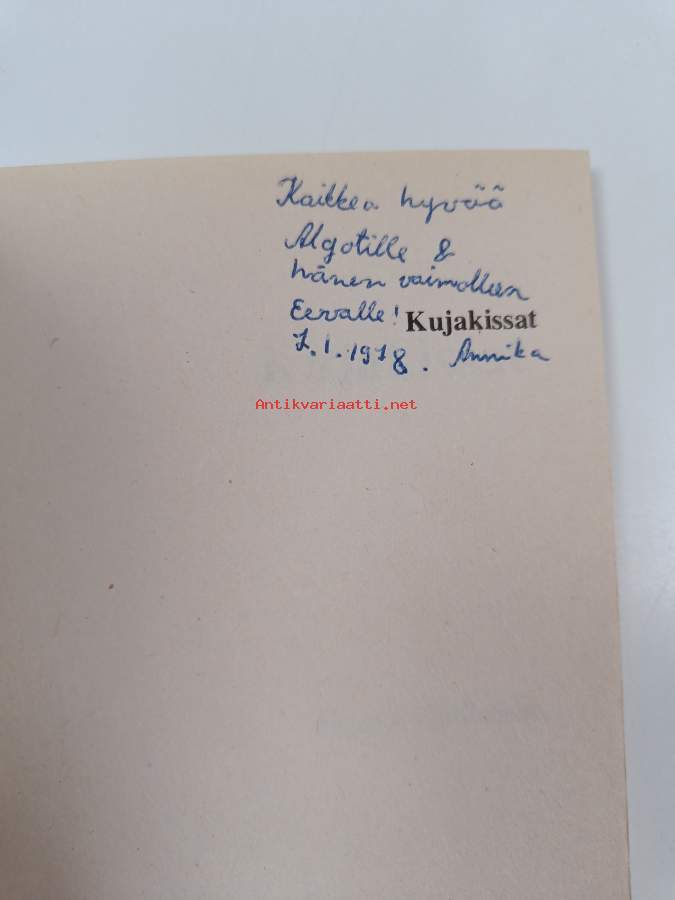 Kaikkea hyvää
Algotille &
hänen vaimolleen
Eevalle!
Kujakissat
7.1.1978. Annika
Antikvariaatti.net